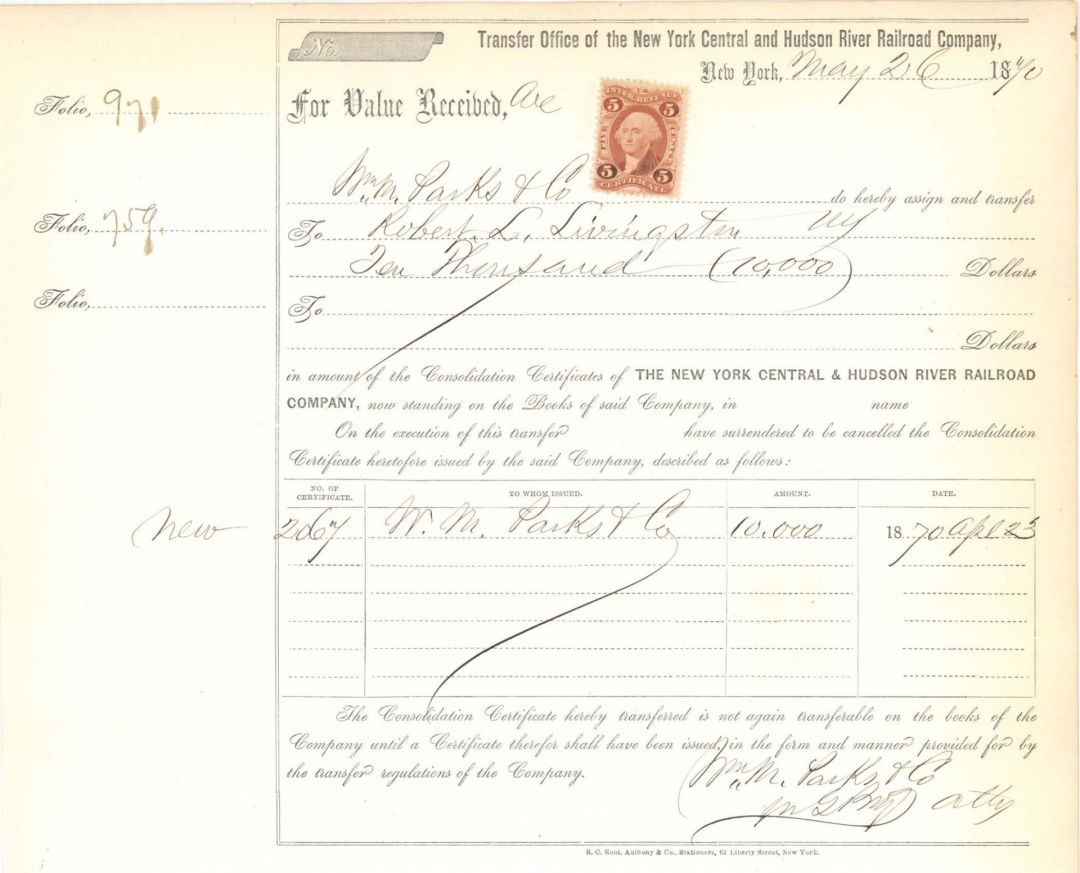 No.
Transfer Office of the New York Central and Hudson River Railroad Company,
New York, May 26 1870
Folio, 971
For Value Received, We
U.S. INTER. REVENUE
5 5
FIVE CENTS
5 5
CERTIFICATE
Wm. M. Parks & Co do hereby assign and transfer
Folio, 759.
To Robert L. Livingston NY
Ten Thousand (10,000) Dollars
Folio,
To
Dollars
in amount of the Consolidation Certificates of THE NEW YORK CENTRAL & HUDSON RIVER RAILROAD
COMPANY, now standing on the Books of said Company, in name
On the execution of this transfer have surrendered to be cancelled the Consolidation
Certificate heretofore issued by the said Company, described as follows:
NO. OF CERTIFICATE. TO WHOM ISSUED. AMOUNT. DATE.
new 2067 W. M. Parks & Co 10.000 1870 Apl 23
The Consolidation Certificate hereby transferred is not again transferable on the books of the
Company until a Certificate therefor shall have been issued, in the form and manner provided for by
the transfer regulations of the Company.
Wm. M. Parks & Co
atty
R. C. Root, Anthony & Co., Stationers, 62 Liberty Street, New York.